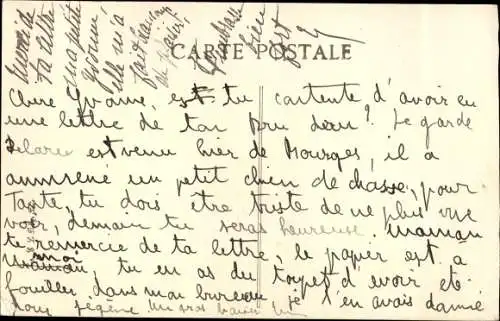 CARTE POSTALE
Merci de
ta lettre
ma petite
Yvonne
elle m'a
fait plaisir
bien
fort
Chère Yvonne, es tu contente d'avoir eu
une lettre de ton ? Le garde
est venu hier de Bourges, il a
ammené un petit chien de chasse, pour
Tante, tu dois être triste de ne plus
voir, demain tu seras heureuse. Maman
te remercie de ta lettre, le papier est à
moi, tu en as du toupet d'avoir été
fouiller dans mon bureau je t'en avais donné
Un gros baiser